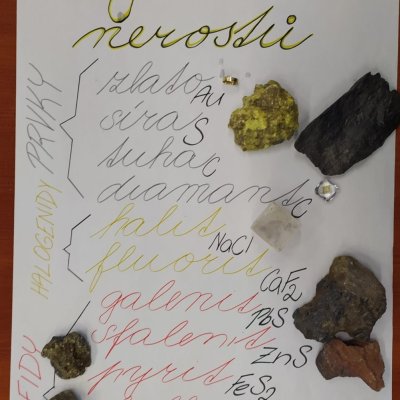 nerostů
PRVKY
zlato Au
síra S
tuha C
diamant C
HALOGENDY
halit NaCl
fluorit CaF2
galenit PbS
sfalenit ZnS
pyrit FeS2
FIDY